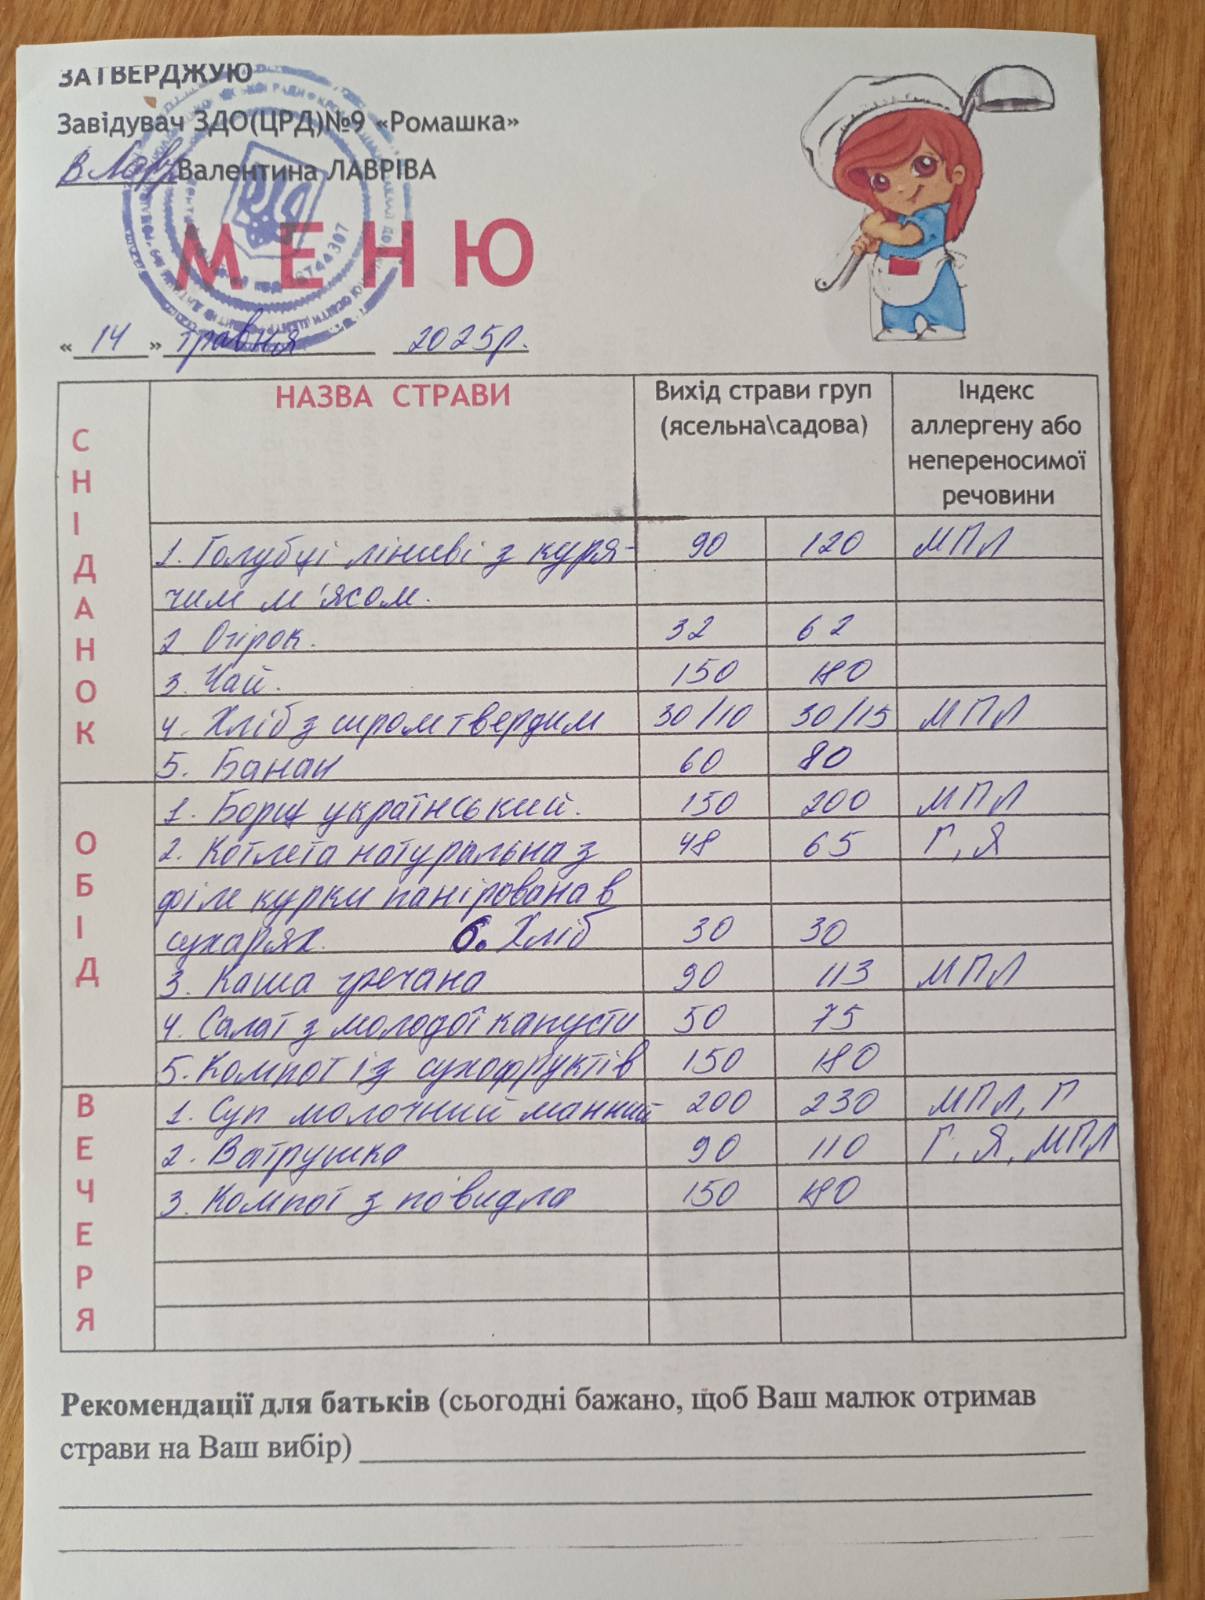 ЗАТВЕРДЖУЮ
Завідувач ЗДО(ЦРД)№9 «Ромашка»
В Лавр Валентина ЛАВРІВА
МЕНЮ
« 14 » травня 2025р.
СНІДАНОК
НАЗВА СТРАВИ
Вихід страви груп (ясельна\садова)
Індекс аллергену або непереносимої речовини
1. Голубці ліниві з куря- 90 120 МПЛ
чим м'ясом.
2 Огірок. 32 62
3. Чай. 150 180
4. Хліб з сиром твердим 30/10 30/15 МПЛ
5. Банан 60 80
ОБІД
1. Борщ український. 150 200 МПЛ
2. Котлета натуральна з 48 65 Г, Я
філе курки панірована в
сухарях. 6. Хліб 30 30
3. Каша гречана 90 113 МПЛ
4. Салат з молодої капусти 50 75
5. Компот із сухофруктів 150 180
ВЕЧЕРЯ
1. Суп молочний манний 200 230 МПЛ, Г
2. Ватрушка 90 110 Г, Я, МПЛ
3. Компот з повидла 150 180
Рекомендації для батьків (сьогодні бажано, щоб Ваш малюк отримав
страви на Ваш вибір)